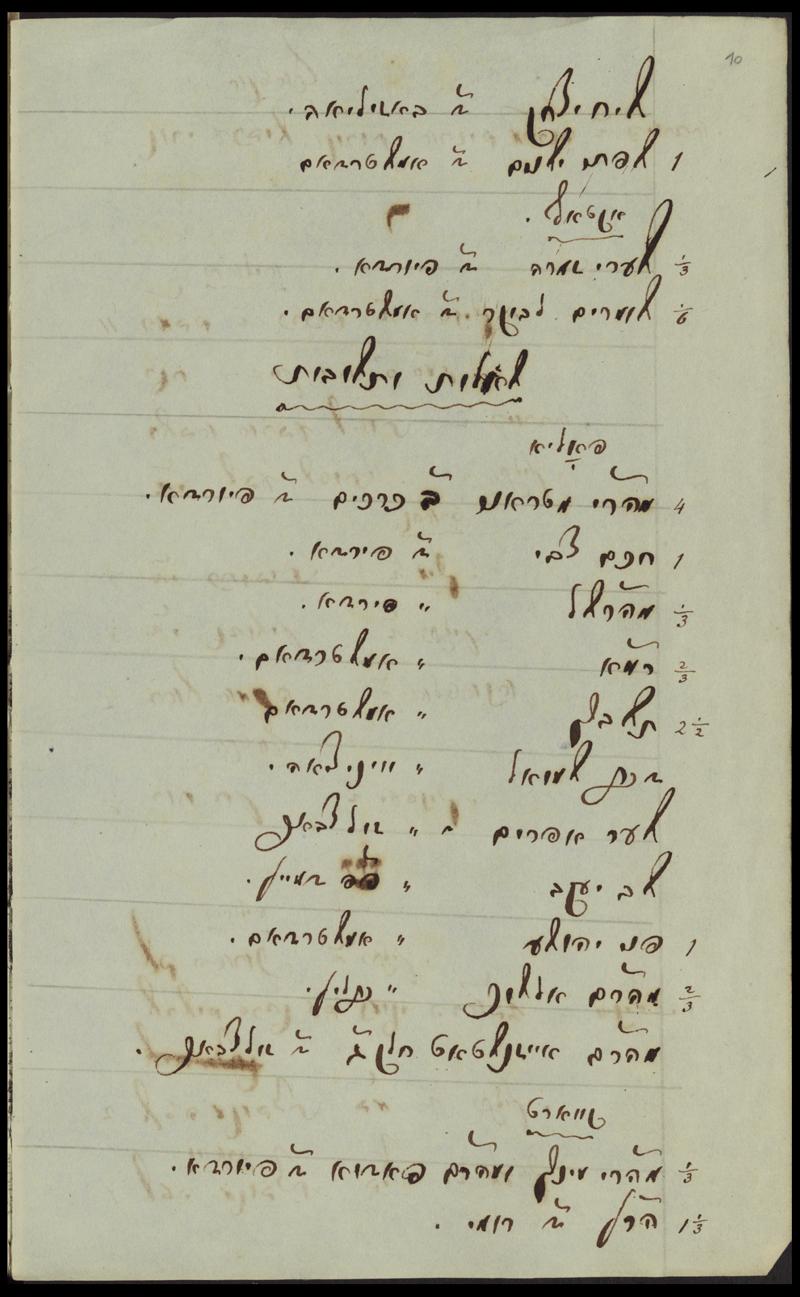 10
שיח יצחק ד״ באזיליאה.
1 שפתי ישנים ד״ אמשטרדאם
אקטאף.
⅓ שערי זמרה ד״ פיורדא.
⅙ שומרים לבוקר ד״ אמשטרדאם.
שאלות ותשובות
פאליא
4 מהר״י מטראני ב׳ כרכים ד״ פיורדא.
1 חכם צבי ד״ פירדא.
⅓ מהרש״ל " פירדא.
⅔ רמ״א " אמשטרדאם.
2½ תשבץ " אמשטרדאם
נבחר שמואל " וויניציאה.
שער אפרים ד " זולצבאך
שב יעקב " פפ דמיין.
1 פני יהושע " אמשטרדאם.
⅔ מהר״ם אלשיך "
מהר״ם אייזנשטאט חלק ג׳ ד״ זולצבאך.
קווארט
⅓ מהר״י מינץ ומהר״ם פאדוא ד״ פיורדא.
1⅓ הר״ן ד״ רומי.